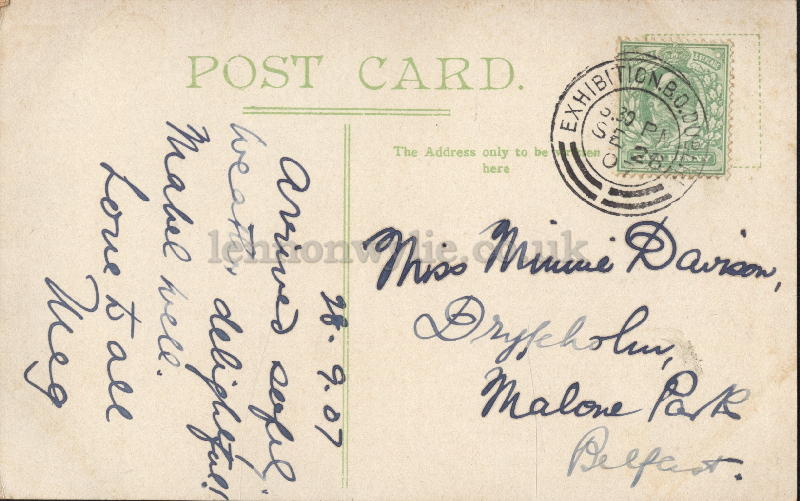 POST CARD.
The Address only to be written
here
EXHIBITION.B.O.DUB
3.30 PM
SE 28
07
28.9.07
Arrived safely
weather delightful!
Mabel well.
Love to all
Meg
Miss Minnie Davison,
Dryfeholm,
Malone Park
Belfast.
lennonwylie.co.uk